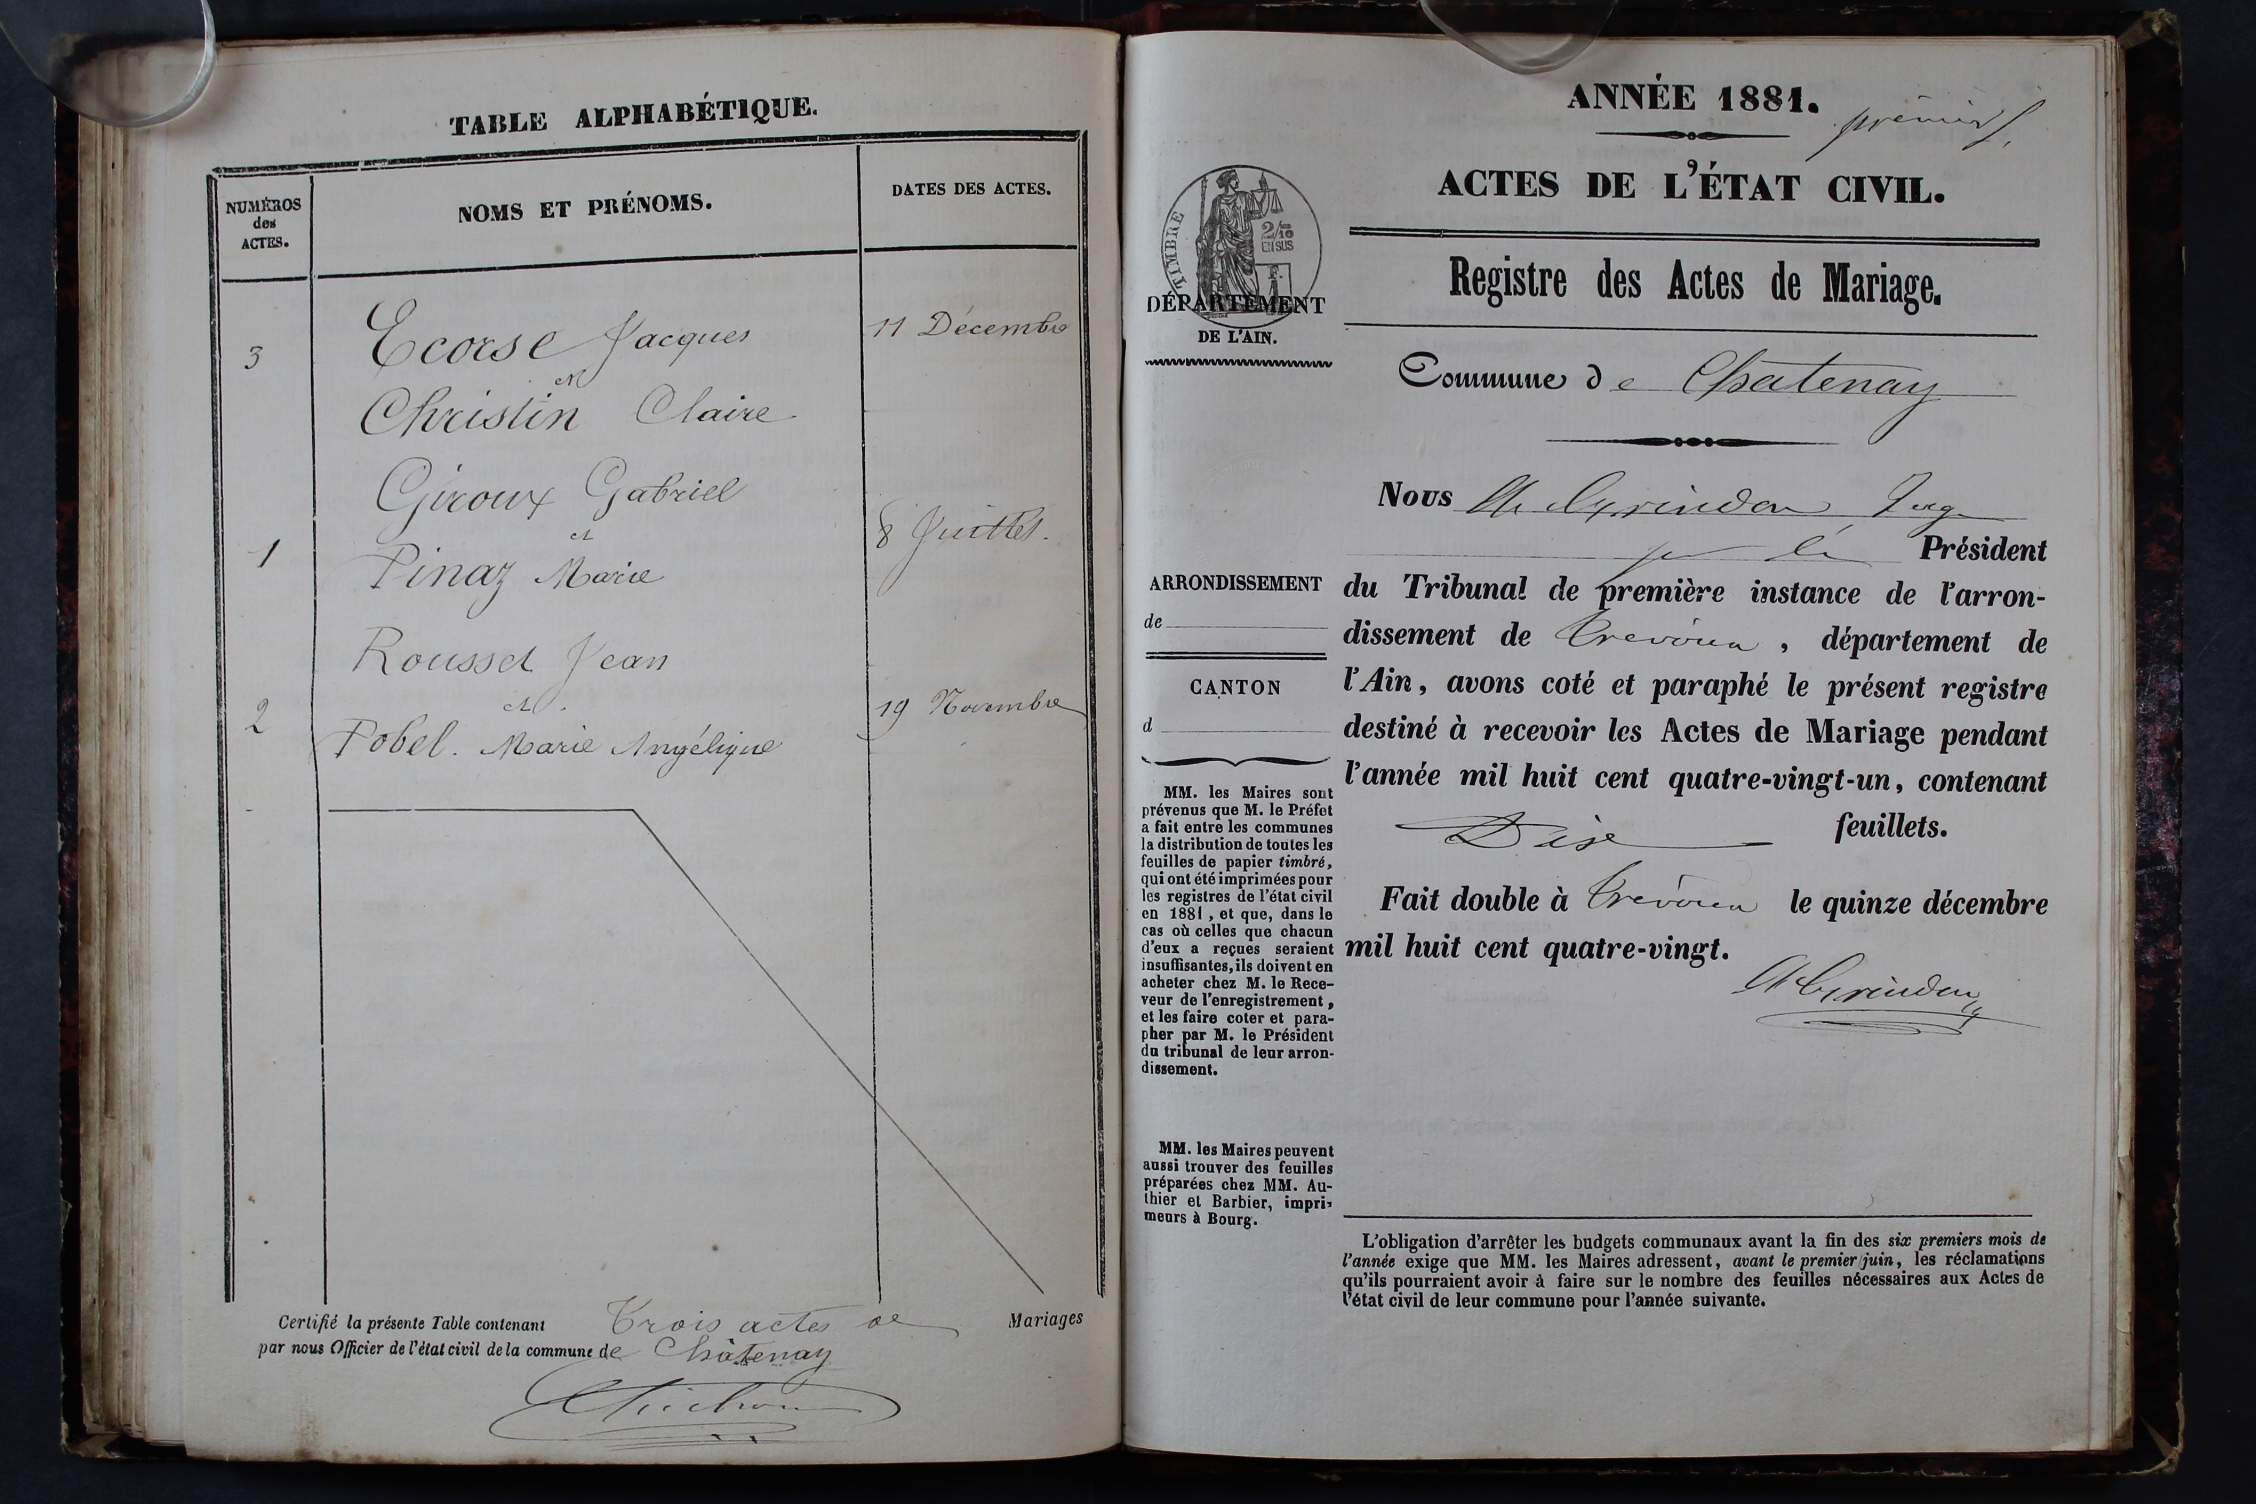 TABLE ALPHABÉTIQUE.
NUMÉROS
des
ACTES.
NOMS ET PRÉNOMS.
DATES DES ACTES.
3
Ecorse Jacques
11 Décembre
et
Christin Claire
Giroux Gabriel
1
et
8 Juillet.
Pinaz Marie
Rousset Jean
2
et
19 Novembre
Pobel. Marie Angélique
Certifié la présente Table contenant Trois actes de Mariages
par nous Officier de l'état civil de la commune de Châtenay
ANNÉE 1881.
premier
ACTES DE L'ÉTAT CIVIL.
TIMBRE
2/10
EN SUS
DÉPARTEMENT
DE L'AIN.
Registre des Actes de Mariage.
Commune de Chatenay
ARRONDISSEMENT
de
CANTON
d
MM. les Maires sont
prévenus que M. le Préfet
a fait entre les communes
la distribution de toutes les
feuilles de papier timbré,
qui ont été imprimées pour
les registres de l'état civil
en 1881, et que, dans le
cas où celles que chacun
d'eux a reçues seraient
insuffisantes, ils doivent en
acheter chez M. le Rece-
veur de l'enregistrement,
et les faire coter et para-
pher par M. le Président
du tribunal de leur arron-
dissement.
MM. les Maires peuvent
aussi trouver des feuilles
préparées chez MM. Au-
thier et Barbier, impri-
meurs à Bourg.
Nous Juge
Président
du Tribunal de première instance de l'arron-
dissement de Trévoux, département de
l'Ain, avons coté et paraphé le présent registre
destiné à recevoir les Actes de Mariage pendant
l'année mil huit cent quatre-vingt-un, contenant
feuillets.
Fait double à Trévoux le quinze décembre
mil huit cent quatre-vingt.
L'obligation d'arrêter les budgets communaux avant la fin des six premiers mois de
l'année exige que MM. les Maires adressent, avant le premier juin, les réclamations
qu'ils pourraient avoir à faire sur le nombre des feuilles nécessaires aux Actes de
l'état civil de leur commune pour l'année suivante.